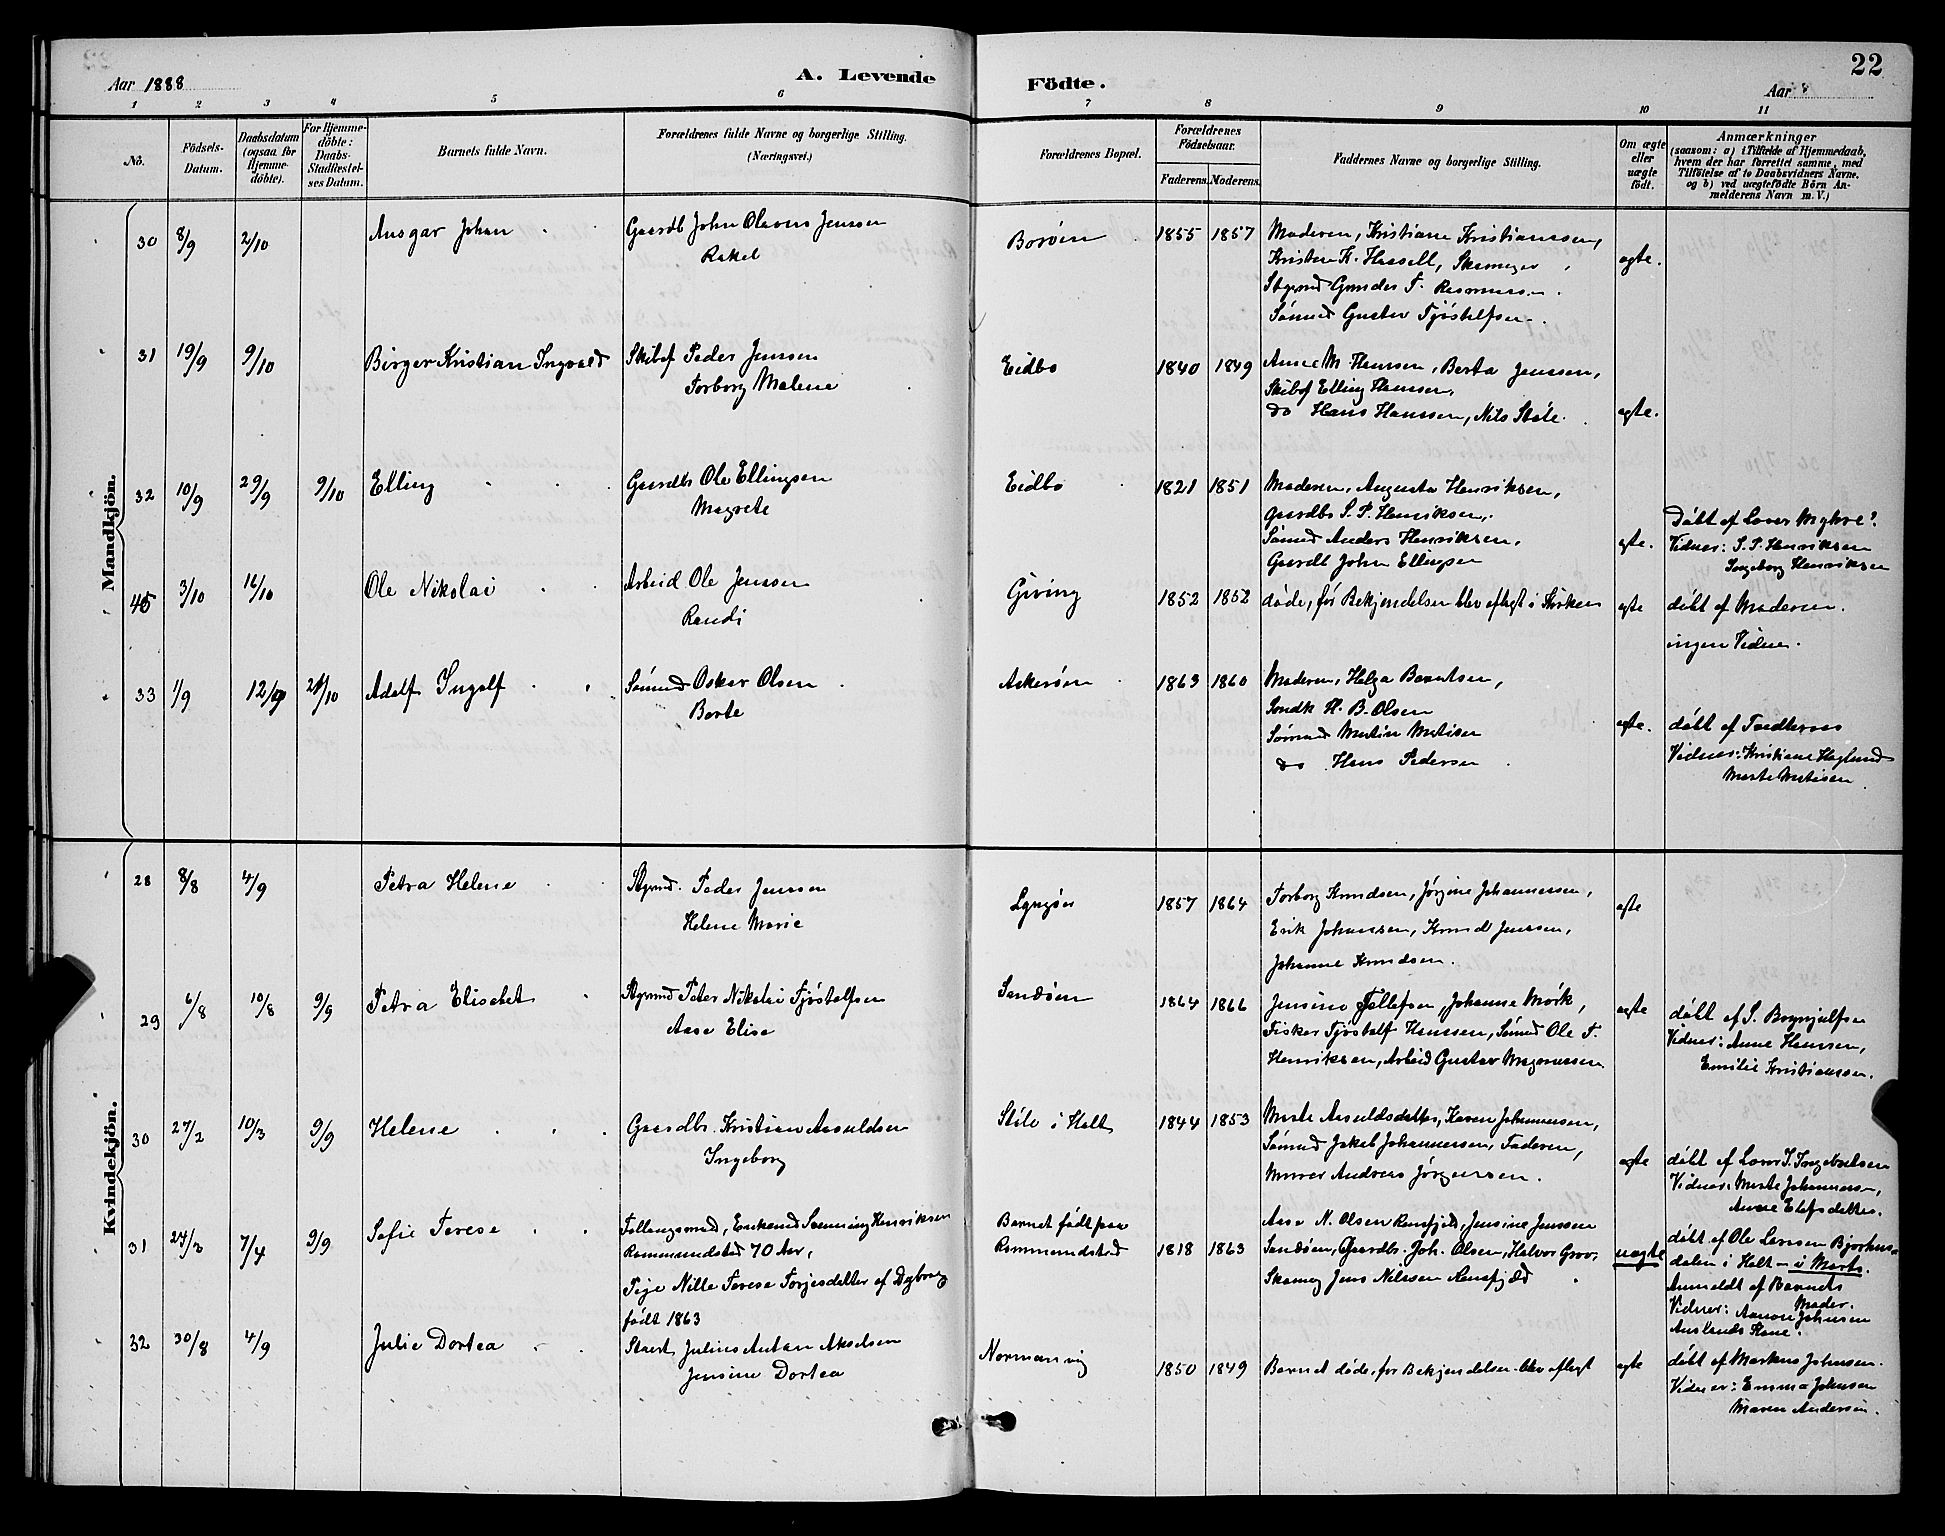 22
Aar 1888
A. Levende Födte.
Aar
1 2 3 4 5 6 7 8 9 10 11
No.
Födsels-Datum.
Daabsdatum (ogsaa for Hjemme-döbte).
For Hjemme-döbte: Daabs-Stadfæstel-ses Datum.
Barnets fulde Navn.
Forældrenes fulde Navne og borgerlige Stilling.
(Næringsvei.)
Forældrenes Bopæl.
Forældrenes Födselsaar.
Faderens. Moderens.
Faddernes Navne og borgerlige Stilling.
Om ægte eller uægte födt.
Anmærkninger
(saasom: a) i Tilfælde af Hjemmedaab,
hvem der har forrettet samme, med
Tilföielse af to Daabsvidners Navne,
og b) ved uægtefödte Börn An-
melderens Navn m. V.)
Mandkjön.
30 8/9 2/10 Ansgar Johan Gaardb John Olavus Jenssen Borøen 1855 1857 Moderen, Kristiane Kristianssen, ægte.
Rakel Kristen K. Hassell, Skomager
Styrmd Gunder T. Rasmussen.
Sømnd Gustav Tjøstelfsen.
31 19/9 9/10 Birger Kristian Ingvald Skibsf Peder Jenssen Eidbo 1840 1849 Anne M. Hanssen, Berta Jenssen,
Torborg Malene Skibsf Elling Hanssen,
do Hans Hanssen, Nils Støle. ægte.
32 10/9 29/9 9/10 Elling Gaardb Ole Ellingsen Eidbo 1821 1851 Moderen, Augusta Henriksen,
Magrete Gaardbr S. P. Henriksen,
Sømnd Anders Henriksen, ægte.
Gaardb John Ellingsen
Døbt af Lærer Myhre?
Vidner: S. P. Henriksen
Ingeborg Henriksen
45 3/10 16/10 Ole Nikolai Arbeid Ole Jenssen Giving 1852 1852 døde, før Bekjendelsen blev aflagt i Kirken ægte døbt af Moderen.
Randi ingen Vidner.
33 1/9 12/9 21/10 Adolf Ingolf Sømnd Oskar Olsen Askerøen 1863 1860 Moderen, Helga Berntsen,
Berte H. B. Olsen
Sømnd Martin Matisen ægte. døbt af
do Hans Pedersen Vidner: Kristiane Haglund
Marte Matisen
Kvindekjön.
28 8/8 4/9 Petra Helene Styrmd. Peder Jenssen Lyngøer 1857 1864 Torborg Knudsen, Jørgine Johannessen, ægte
Helene Marie Erik Johanssen, Knud Jenssen,
Johanne Knudsen.
29 6/8 10/8 9/9 Petra Elisabet Styrmd Peter Nikolai Tjøstolfsen Sandøen 1864 1866 Jensine Tellefsen, Johanne Mørk, ægte døbt af S. Brynjulfsen
Aase Elise Fisker Tjøstolf Hanssen, Sømnd Ole T. Vidner: Anne Hanssen,
Henriksen, Arbeid Gustav Magnussen Emilie Kristianssen.
30 27/2 10/3 9/9 Helene Gaardbr. Kristian Aasuldsen Støle i Holt 1844 1853 Marte Aasuldsdatter, Karen Johannessen,
Ingeborg Sømnd Jakob Johannessen, Faderen, ægte døbt af Lærer T. Ingebretsen
Murer Andreas Jørgensen. Vidner: Marte Johannessen,
Anne Elefsdatter.
31 24/3 7/4 9/9 Sofie Terese Fattigmd, Enkemd Henriksen Barnet født paa Aase N. Olsen Ramfjeld, Jensine Jenssen
Rommundstad 70 Aar, Rommundstad 1818 1863 Sandøen, Gaardbr. Joh. Olsen, Halvor Grov, uægte døbt af Ole Larsen Bjorhus-
Pige Nille Terese Torjesdatter af Dybvaag Skomag Jens Nilssen Ramfjeld dalen i Holt - i Marts.
født 1863 Anmeldt af Barnets Moder.
Vidner: Aanon Johnsen
32 30/8 4/9 Julie Dortea Julius Antan Akselsen Normanvig 1850 1849 Barnet døde, før Bekjendelsen blev aflagt ægte døbt af Markus Johnsen.
Jensine Dortea Vidner: Emma Johnsen
Maren Andersen.